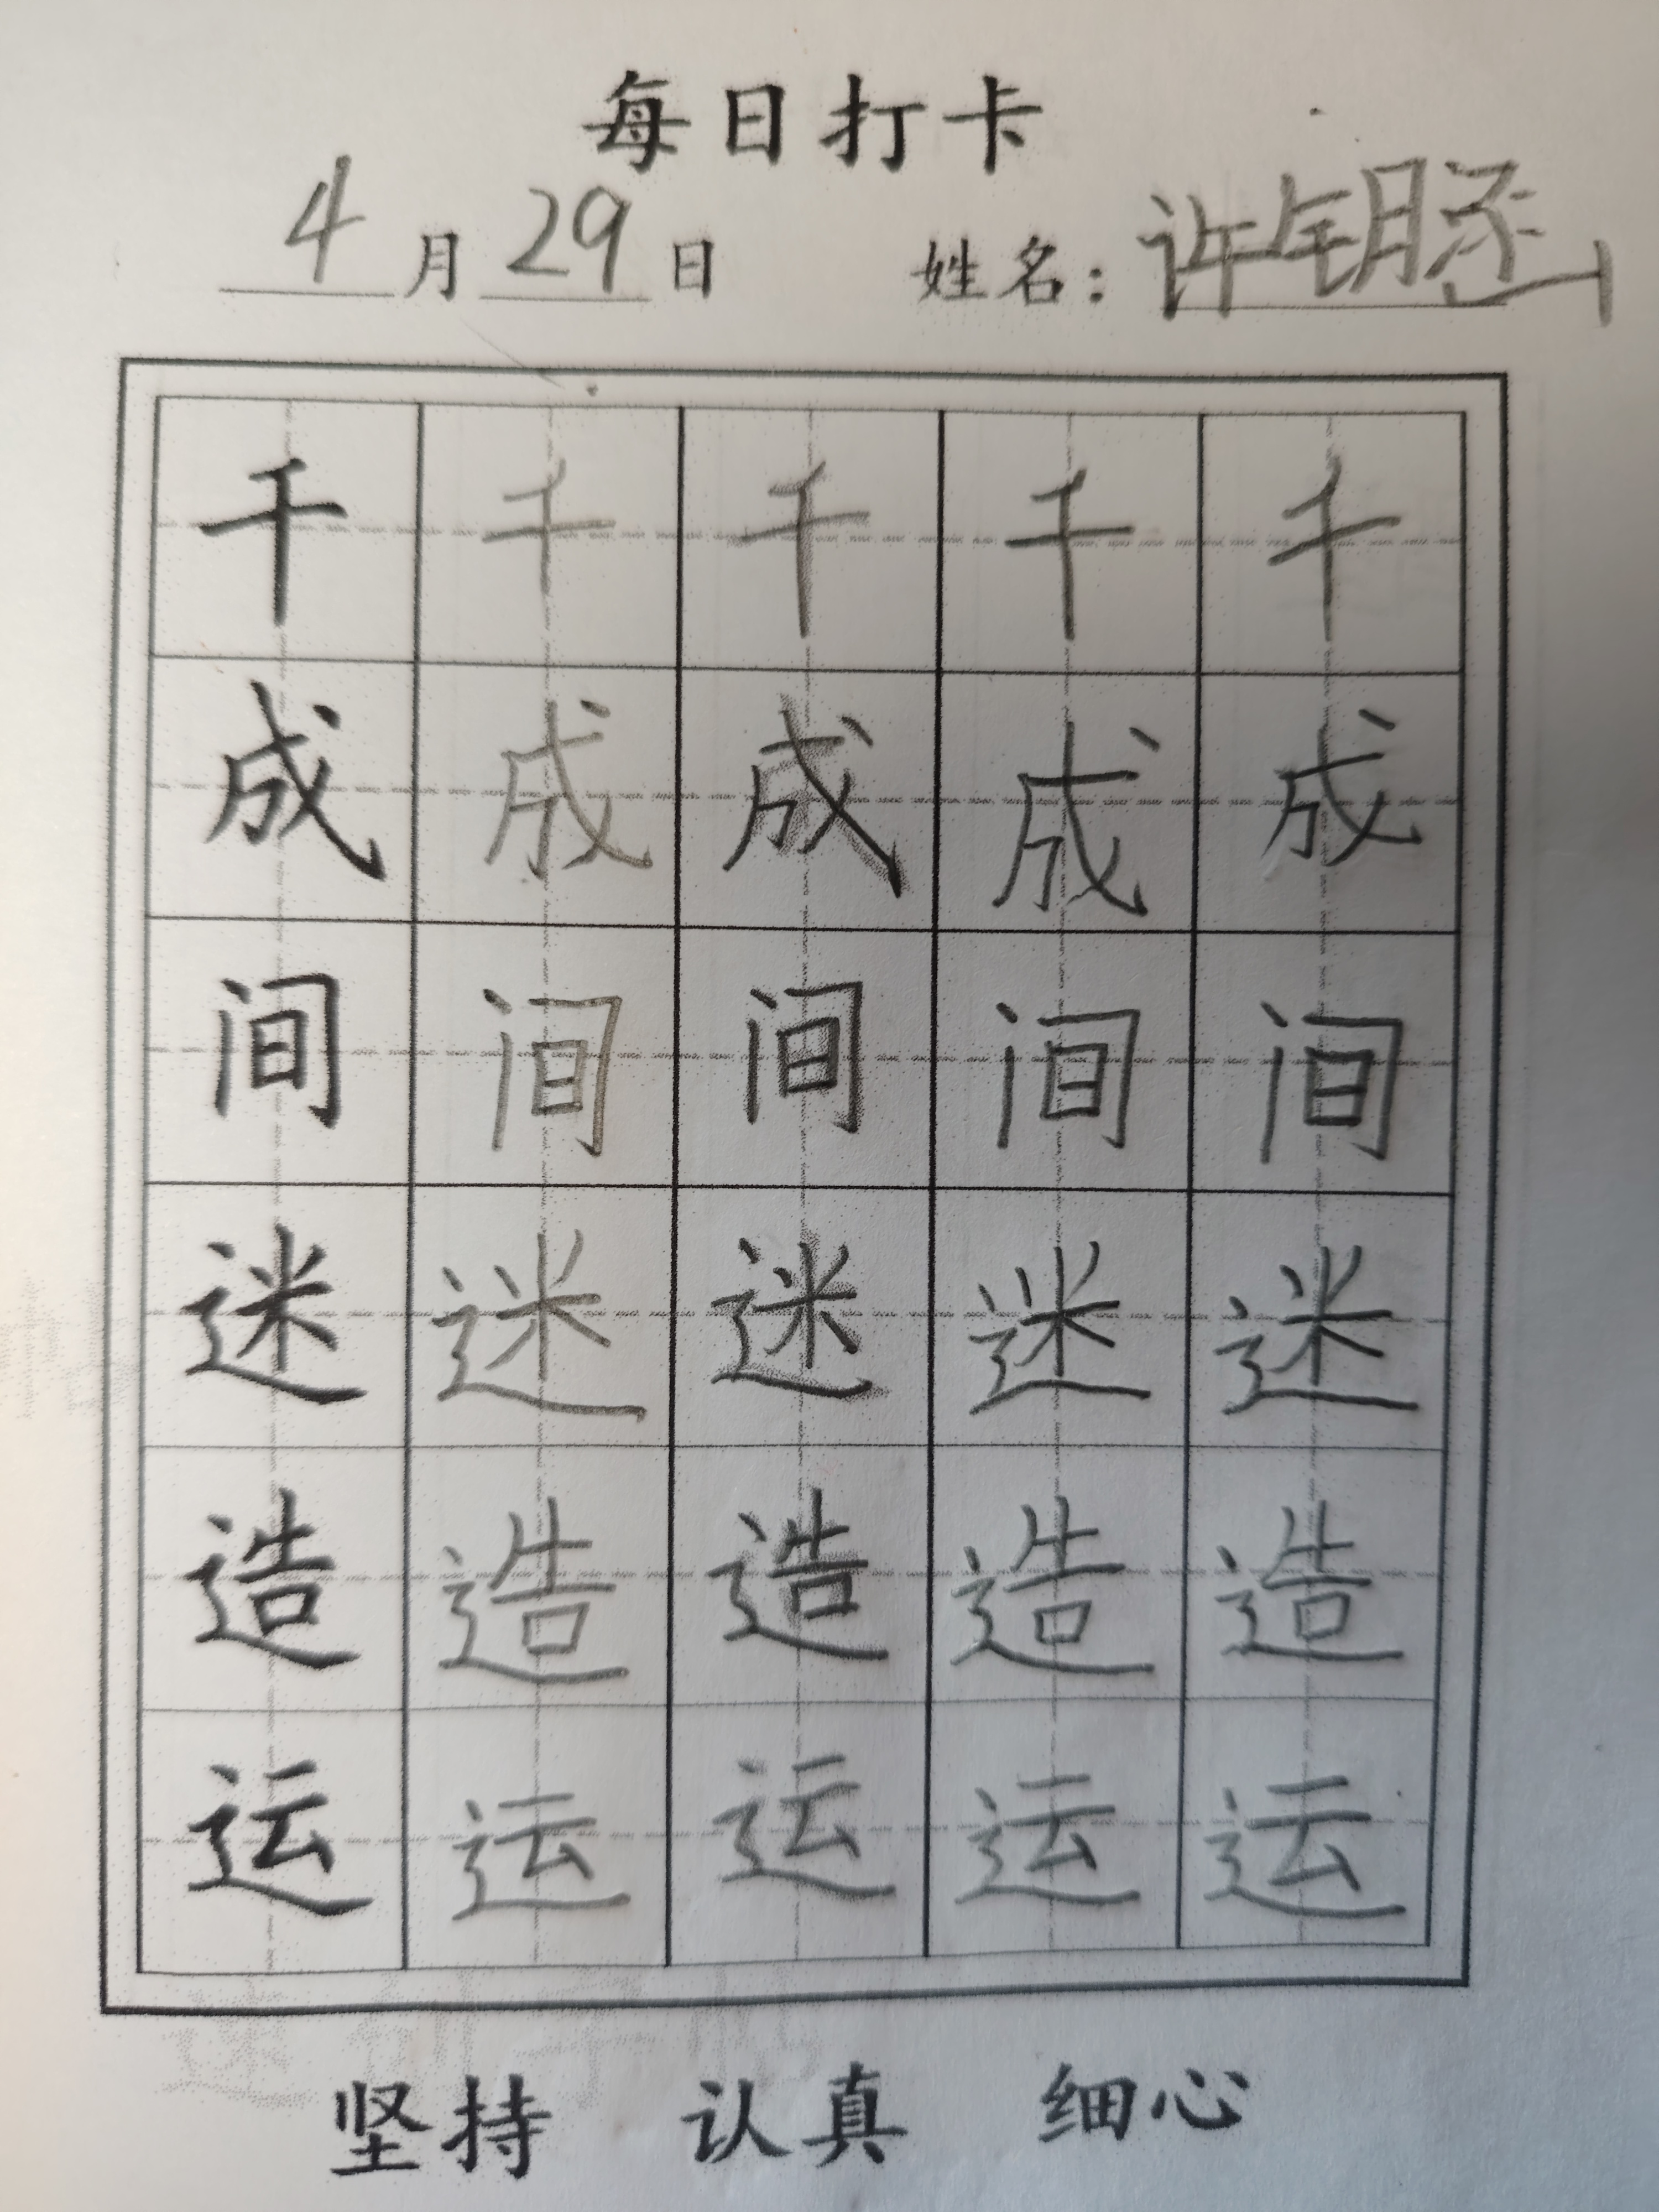 每日打卡
4月29日 姓名：许钥
千千千千千
成成成成成
间间间间间
迷迷迷迷迷
造造造造造
运运运运运
坚持 认真 细心